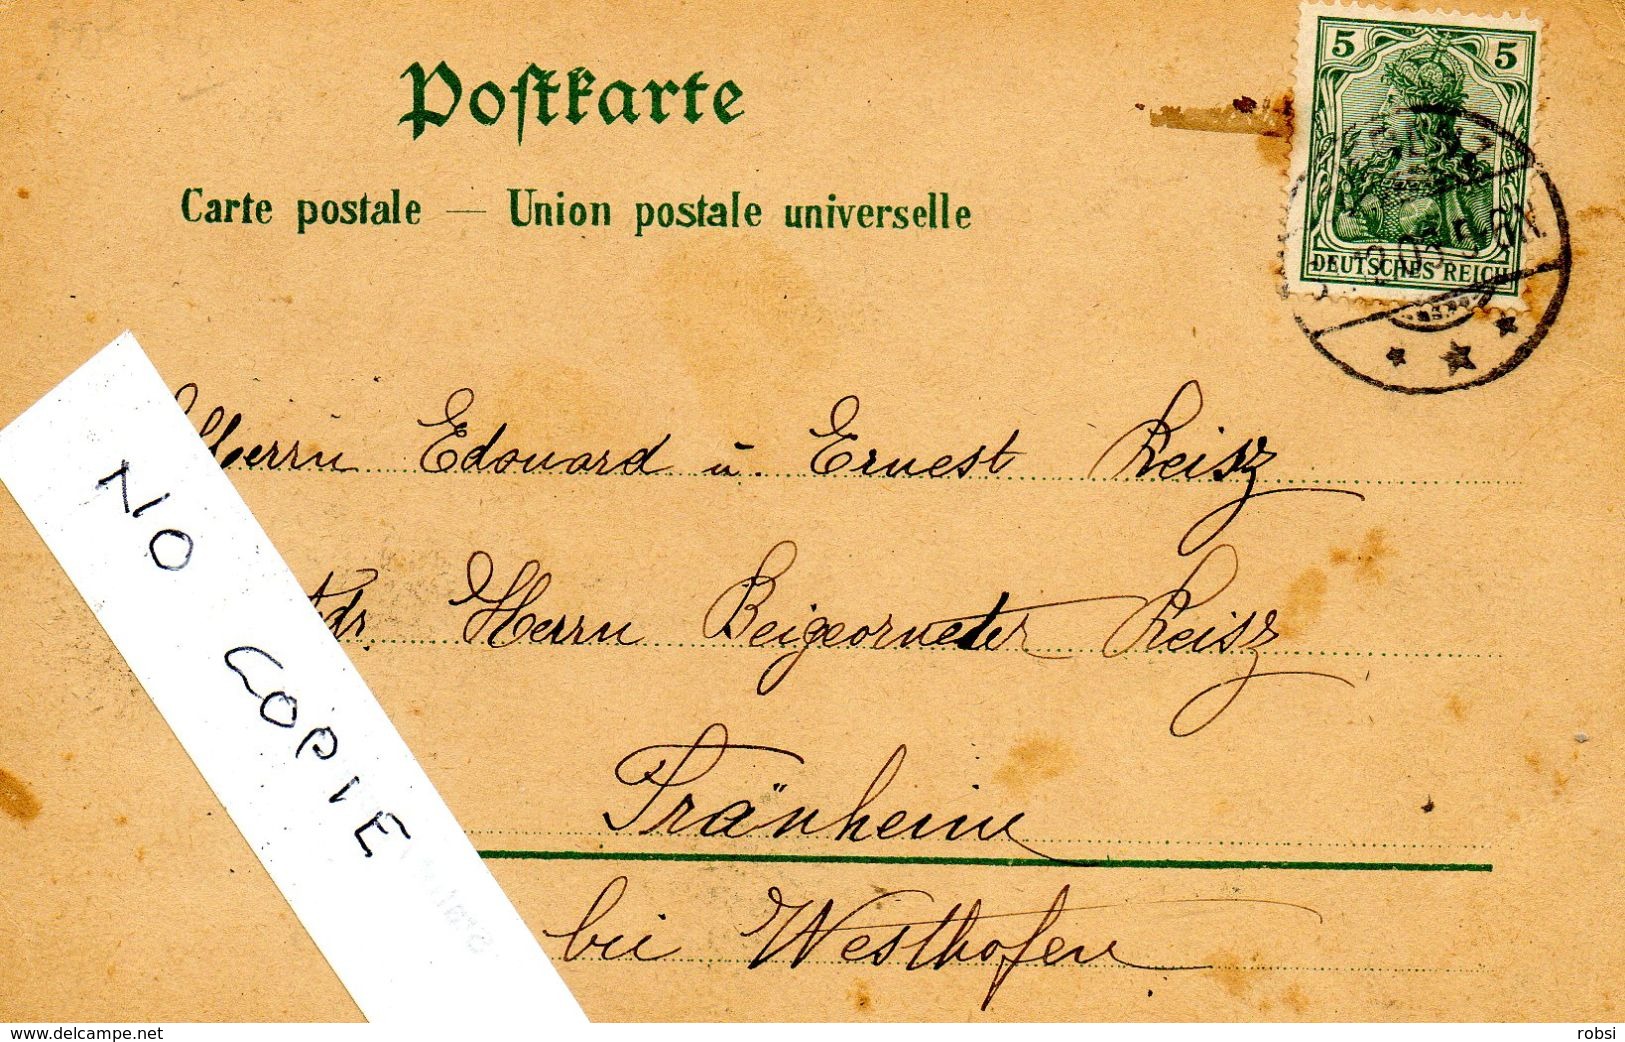 Postkarte
Carte postale — Union postale universelle
5 5
DEUTSCHES REICH
Herrn Edouard u. Ernest Reisz
Adr. Herrn Beigeorneter Reisz
Tränheim
bei Westhofen
NO COPIE
www.delcampe.net
robsi